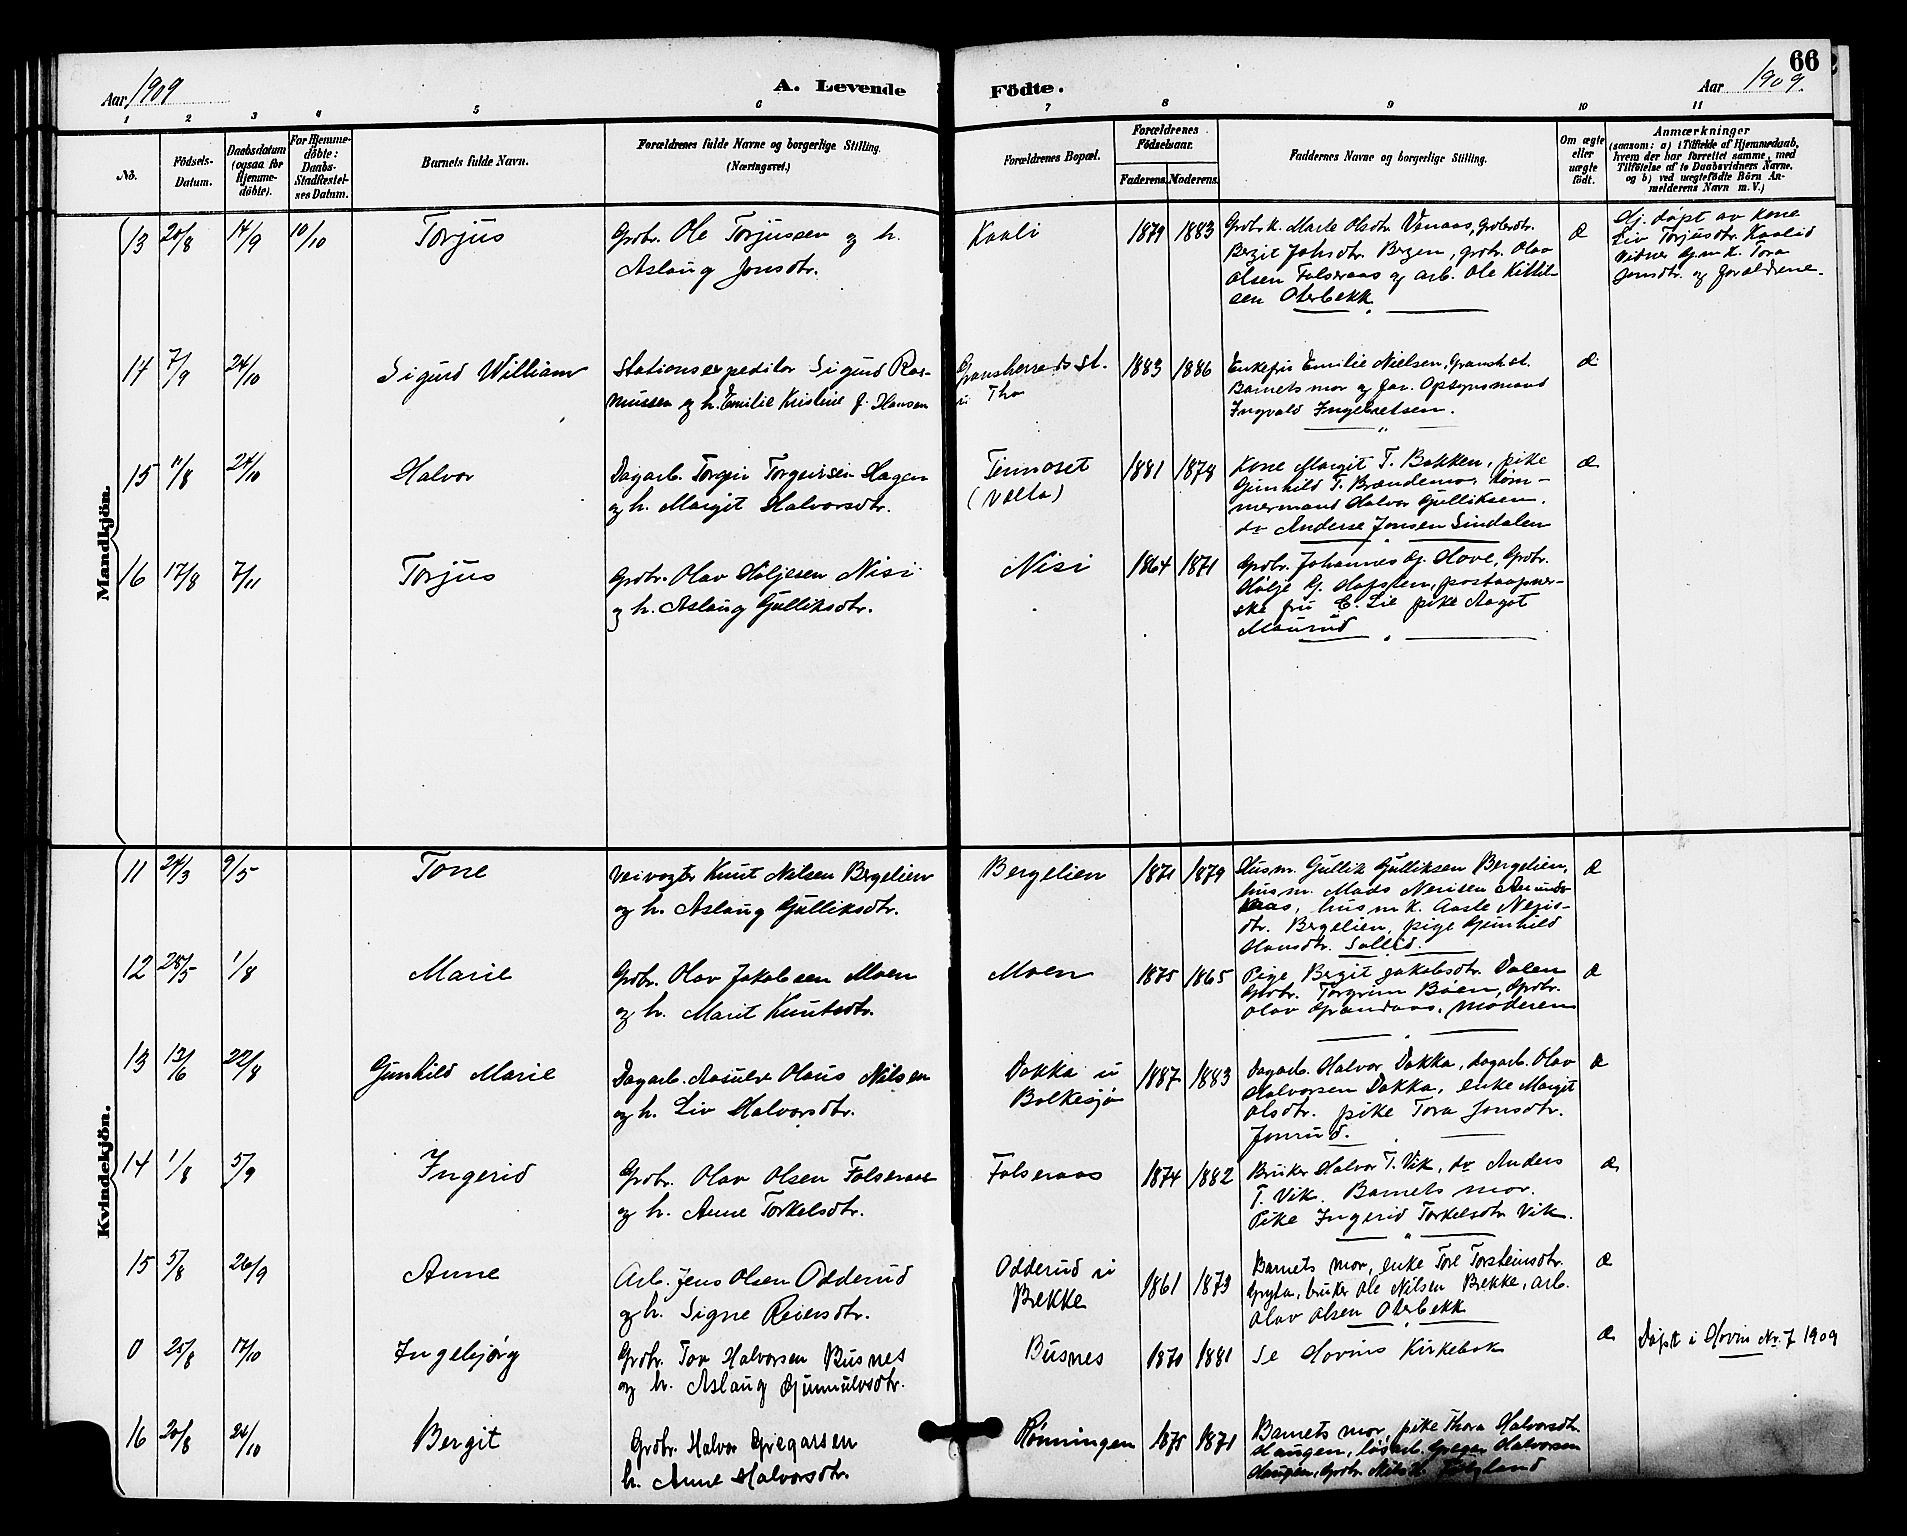 66
Aar 1909
A. Levende
Födte.
Aar 1909.
1 2 3 4 5 6 7 8 9 10 11
No.
Födsels-
Datum.
Daabsdatum
(ogsaa for
Hjemme-
döbte).
For Hjemme-
döbte:
Daabs-
Stadfæstel-
ses Datum.
Barnets fulde Navn.
Forældrenes fulde Navne og borgerlige Stilling.
(Næringsvei.)
Forældrenes Bopæl.
Forældrenes
Födselsaar.
Faderens. Moderens.
Faddernes Navne og borgerlige Stilling.
Om ægte
eller
uægte
födt.
Anmærkninger
(saasom: a) i Tilfælde af Hjemmedaab,
hvem der har forrettet samme, med
Tilföielse af to Daabsvidners Navne.
og b) ved uægtefödte Börn An-
melderens Navn m. V.)
Mandkjön.
13 20/8 14/9 10/10 Torjus
Grdbr. Ole Torjussen og h.
Aslaug Jonsdtr.
Kaali 1879 1883
Grdbr. k. Marte Olsdtr. Vanaas, Grdbrdtr.
Bergit Johsdtr. Bergen, grdbr. Olav
Olsen Folseraas og arb. Ole Kittil-
sen Oterbekk
Æ
Hj. døpt av kone
Liv Torjusdtr. Kaalid
Vidner Gjm.k. Tora
Jonsdtr. og forældrene.
14 7/9 24/10 Sigurd William
Stationsexpeditør Sigurd Ras-
mussen og h. Emilie Kristine f. Hansen
Gransherreds st.
Tho
1883 1886
Enkefru Emilie Nielsen, Gransh. st.
Barnets mor og far. Opsynsmand
Ingvald Ingebretsen.
Æ
15 11/8 24/10 Halvor
Dagarb. Torgeir Torgeirsen Hagen
og h. Margit Halvorsdtr.
Tinnoset
(Velta)
1881 1878
Kone Margit T. Bakken, pike
Gunhild T. Brændemo, tøm-
mermand Halvor Gulliksen.
do Anders Jonsen Lindalen
Æ
16 17/8 7/11 Torjus
Grdbr. Olav Høljesen Nisi
og h. Aslaug Gulliksdtr.
Nisi 1864 1871
Grdbr. Johannes Gj. Hove, Grdbr.
Hølje G. Hafsten, postaapner-
ske fru C. Lie pike Aagot
Maurud
Kvindekjön.
11 24/3 9/5 Tone
Veivogter Knut Nilsen Bergelien
og h. Aslaug Gulliksdtr.
Bergelien 1871 1879
Husm. Gullik Gulliksen Bergelien,
husm. Mads Nerisen
husm k. Aaste Neris-
dtr. Bergelien, pige Gunhild
Hansdtr.
Æ
12 28/5 1/8 Marie
Grdbr. Olav Jakobsen Moen
og h. Marit Knutsdtr.
Moen 1875 1865
Pige Bergit Jakobsdtr. Dalen
Grdbr. Torgrim Bøen, Grdbr.
Olav Grandaas, moderen
Æ
13 13/6 22/8 Gunhild Marie
Dagarb. Aasulv Olaus Nilsen
og h. Liv Halvorsdtr.
Dokka u
Bolkesjø
1887 1883
Dagarb. Halvor Dokka, dagarb. Olav
Halvorsen Dokka, enke Margit
Olsdtr. pike Tora Jonsdtr.
Jonrud.
Æ
14 1/8 5/9 Ingerid
Grdbr. Olav Olsen Folseraas
og h. Anne Torkelsdtr.
Folseraas 1874 1882
Bruker Halvor T. Vik, do Anders
T. Vik. Barnets mor.
Pike Ingerid Torkelsdtr Vik.
Æ
15 5/8 26/9 Anne
Arb. Jens Olsen Odderud
og h. Signe Reiersdtr.
Odderud u
Bekke
1861 1873
Barnets mor, enke Tore Torsteinsdtr.
Gryta, bruker Ole Nilsen Bekke, arb.
Olav Olsen Oterbekk
Æ
0 25/8 17/10 Ingebjørg
Grdbr. Tov Halvorsen Busnes
og h. Aslaug Gunnulvsdtr.
Busnes 1870 1881
Se Hovins Kirkebok
Æ
Døpt i Hovin Nr. 7 1909
16 20/8 24/10 Bergit
Grdbr. Halvor Gregarsen
h. Anne Halvorsdtr.
Rønningen 1875 1871
Barnets mor, pike Thora Halvorsdtr.
Haugen, løsarb. Gregar Halvorsen
Haugen, Grdbr. Nils H.